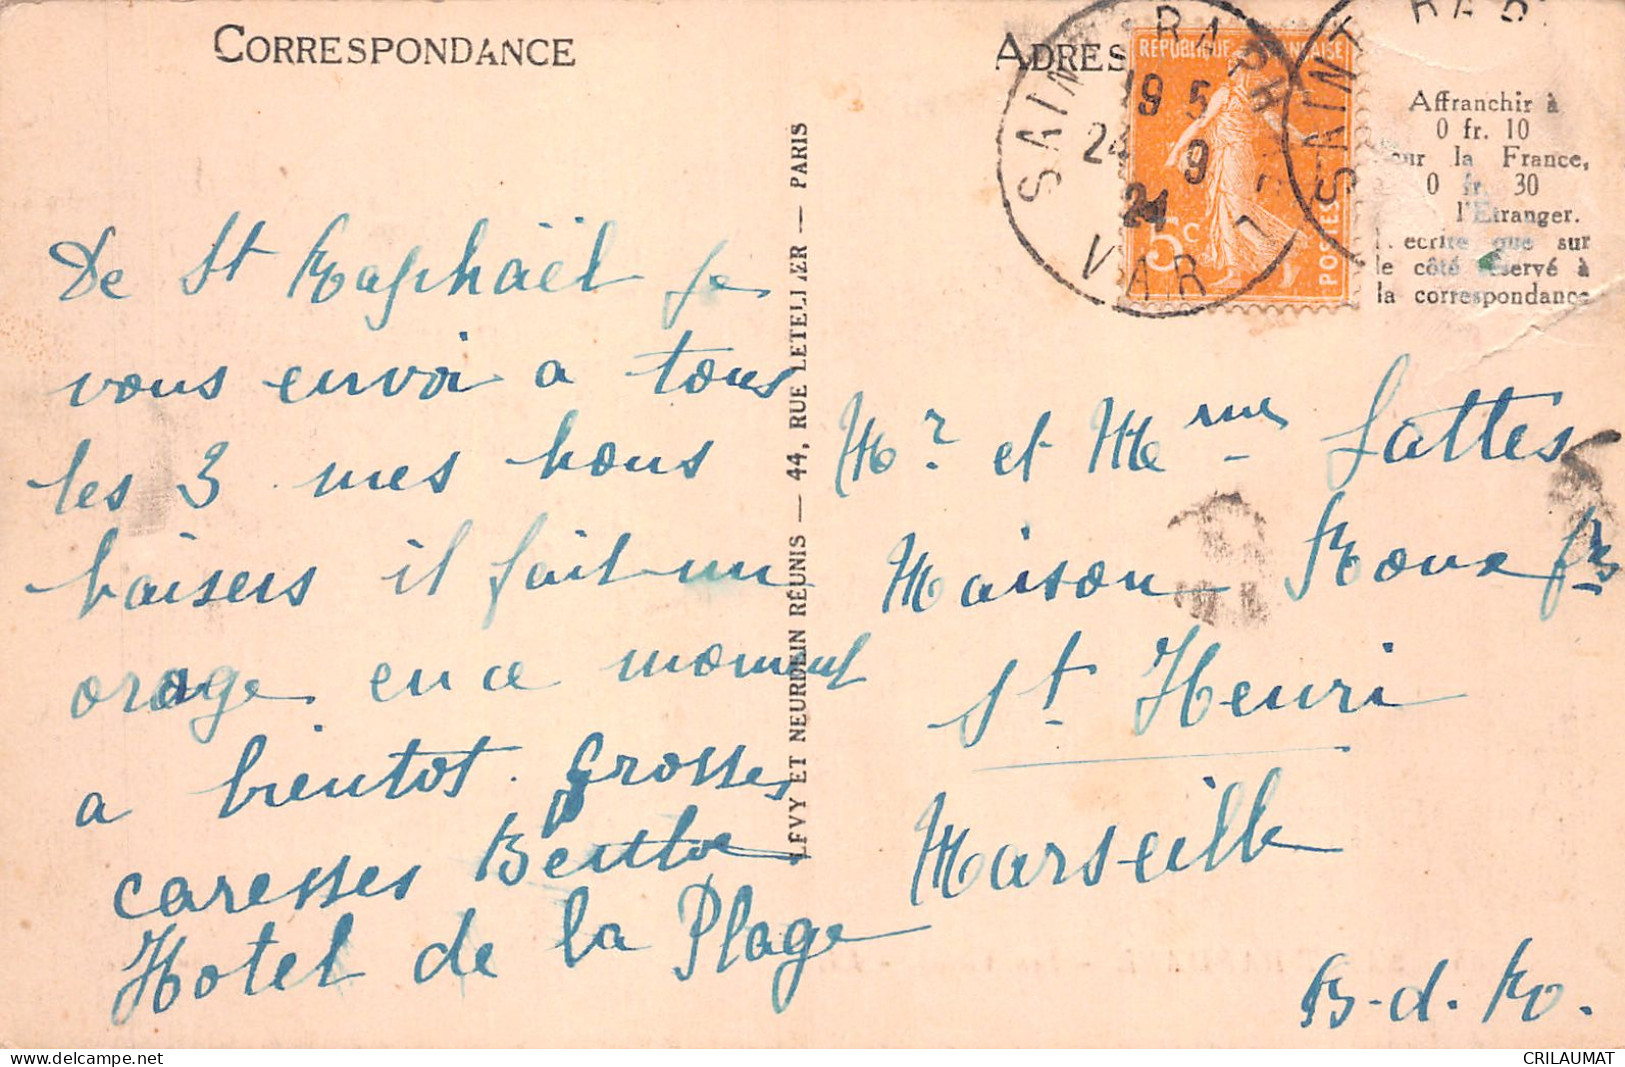 CORRESPONDANCE
De St Raphaël je
vous envoi a tous
les 3 mes bons
baisers il fait un
orage en ce moment
a bientot. Grosses
caresses Berthe
Hotel de la Plage
LEVY ET NEURDEIN RÉUNIS — 44, RUE LETELLIER — PARIS
ADRES
RÉPUBLIQUE FRANÇAISE
5c
POSTES
SAINT RAPH
19 5
24 9
24
VAR
SAINT RAP
Affranchir à
0 fr. 10
pour la France,
0 fr. 30
l'Etranger.
N'ecrire que sur
le côté réservé à
la correspondance
Mr. et Mme Lattes
Maison Roux frs
St Henri
Marseille
B-d. Ro.
CRILAUMAT
https://www.delcampe.net